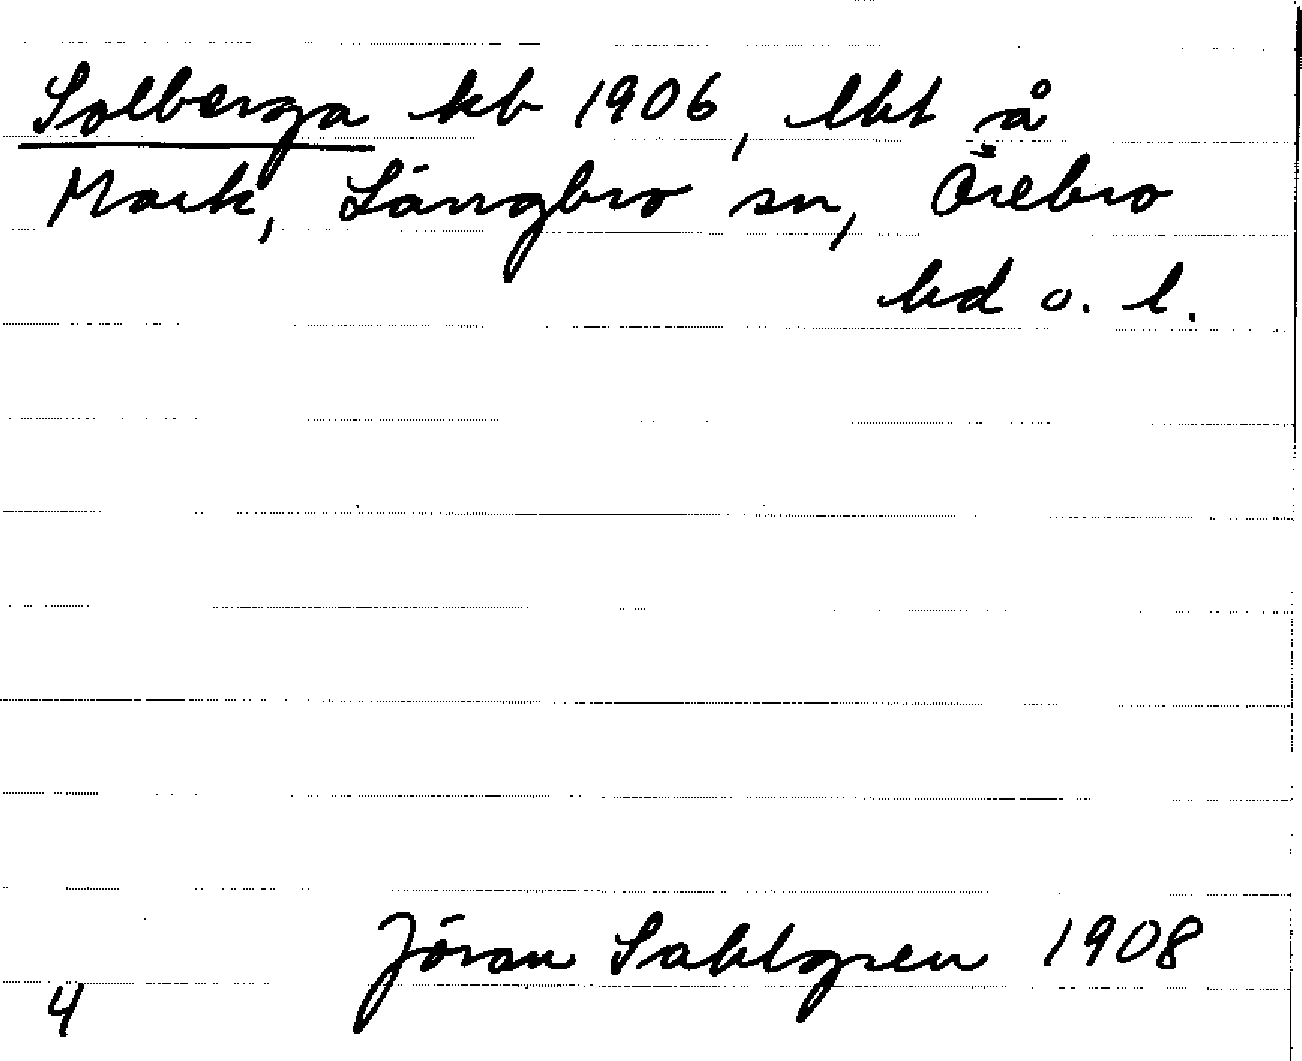 Solberga kb 1906, lht å
Mark, Längbro sn, Örebro
hd o. l.
Jöran Sahlgren 1908
4